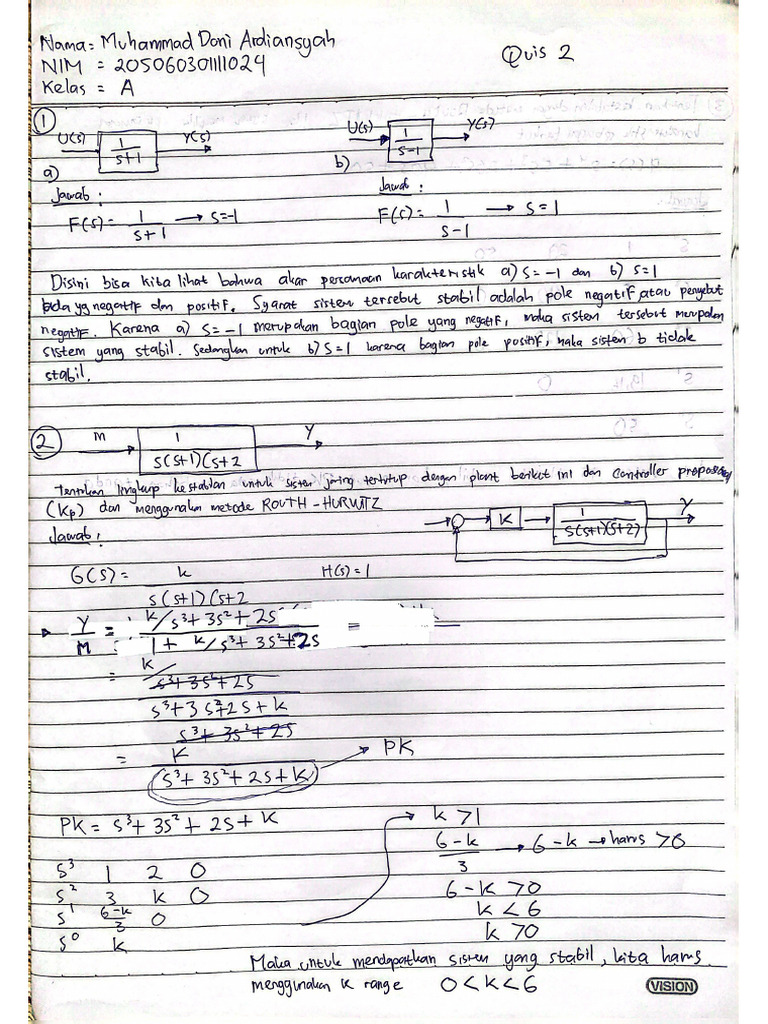 Nama = Muhammad Doni Ardiansyah
Quis 2
NIM = 205060301111024
Kelas = A
1
U(s) 1/s+1 Y(s)
a)
U(s) 1/s-1 Y(s)
b)
Jawab :
F(s) = 1/s+1 → s=-1
Jawab :
F(s) = 1/s-1 → s = 1
Disini bisa kita lihat bahwa akar persamaan karakteristik a) s = -1 dan b) s=1
ada yg negatif dan positif. Syarat sistem tersebut stabil adalah pole negatif atau penyebut
negatif. Karena a) s = -1 merupakan bagian pole yang negatif, maka sistem tersebut merupakan
sistem yang stabil. Sedangkan untuk b) s = 1 karena bagian pole positif, maka sistem b tidak
stabil.
2
M 1/s(s+1)(s+2 Y
Tentukan lingkup kestabilan untuk sistem jaring tertutup dengan plant berikut ini dan controller
(Kp) dan menggunakan metode ROUTH-HURWITZ
Jawab :
K 1/s(s+1)(s+2) Y
G(s) = k/s(s+1)(s+2 H(s) = 1
Y/M = k/s³+3s²+2s / 1 + k/s³+3s²+2s =
= k/s³+3s²+2s / s³+3s²+2s+k/s³+3s²+2s
= K/s³+3s²+2s+k → PK
PK = s³+3s²+2s+k
s³ 1 2 0
s² 3 k 0
s¹ 6-k/3 0
s⁰ k
k > 1
6-k/3 → 6-k → harus > 0
6-k > 0
k < 6
k > 0
Maka untuk mendapatkan sistem yang stabil, kita harus
menggunakan k range 0 < k < 6
VISION